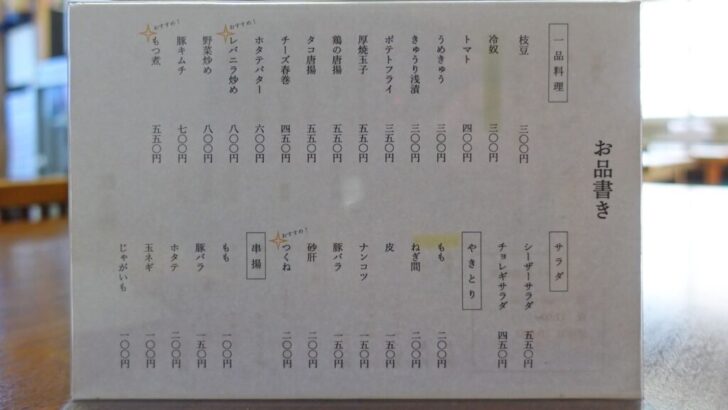 お品書き
一品料理
枝豆 三〇〇円
冷奴 三〇〇円
トマト 四〇〇円
うめきゅう 三〇〇円
きゅうり浅漬 三〇〇円
ポテトフライ 三五〇円
厚焼玉子 五五〇円
鶏の唐揚 五五〇円
タコ唐揚 五五〇円
チーズ春巻 四五〇円
ホタテバター 六〇〇円
おすすめ!
レバニラ炒め 八〇〇円
野菜炒め 八〇〇円
豚キムチ 七〇〇円
おすすめ!
もつ煮 五五〇円
サラダ
シーザーサラダ 五五〇円
チョレギサラダ 四五〇円
やきとり
もも 二〇〇円
ねぎ間 二〇〇円
皮 一五〇円
ナンコツ 一五〇円
豚バラ 一五〇円
砂肝 二〇〇円
おすすめ!
つくね 二〇〇円
串揚
もも 一〇〇円
豚バラ 一五〇円
ホタテ 二〇〇円
玉ネギ 一〇〇円
じゃがいも 一〇〇円